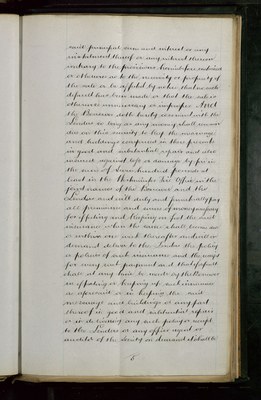 said principal sum and interest or any
instalment thereof or any interest thereon
contrary to the provisions hereinbefore contained
or otherwise as to the necessity or propriety of
the sale or be affected by notice that no such
default has been made or that the sale is
otherwise unnecessary or improper And
the Borrower doth hereby covenant with the
Lenders so long as any money shall remain
due on this security to keep the messuage
and buildings comprised in these presents
in good and substantial repair and also
insured against loss or damage by fire in
the sum of hundred pounds at
least in the Westminster Fire Office in the
joint names of the Borrower and the
Lenders and will duly and punctually pay
all premiums and sums of money necessary
for effecting and keeping on foot the said
insurance when the same shall become
due and will thereafter and will on
demand deliver to the Lenders the policy
or policies of such insurance and the receipt
for every such payment and that if default
shall at any time be made by the Borrower
in effecting or keeping up such insurance
as aforesaid or in keeping the said
messuage and buildings or any part
thereof in good and substantial repair
or in delivering any such policy or receipt
to the Lenders or any officer agent or
auditor of the Society on demand it shall be
5